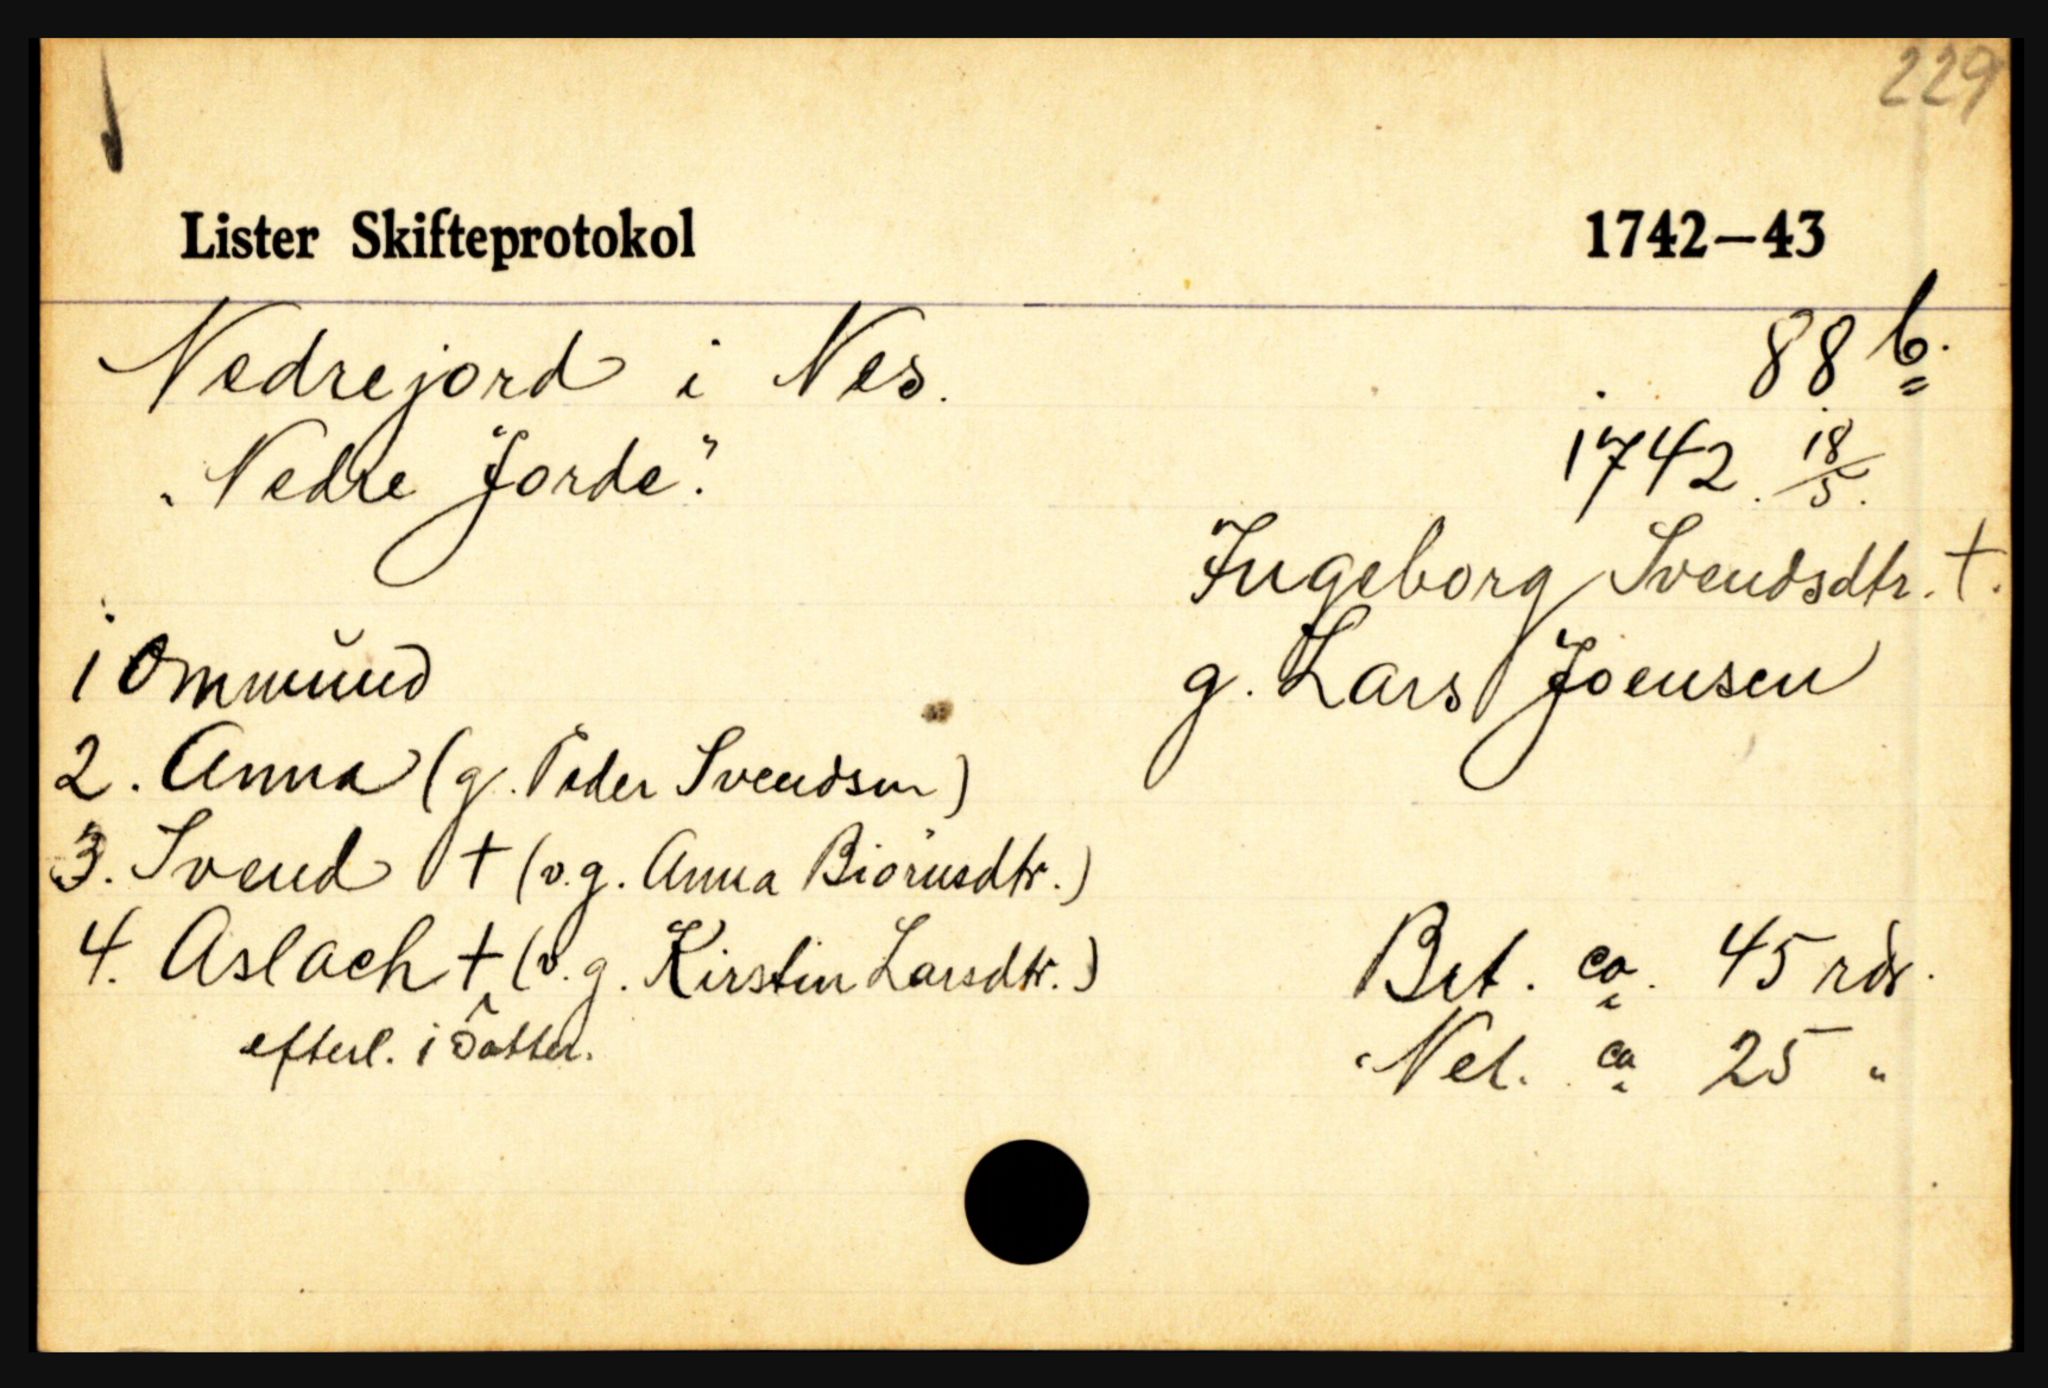 229
Lister Skifteprotokol 1742–43
Nedrejord i Nes. 88 b.
"Nedre Jorde". 1742. 18/5.
Ingeborg Svendsdtr. †.
g. Lars Joensen
1 Ommund
2. Anna (g. Peder Svendsen)
3. Svend † (v. g. Anna Biörnsdtr.)
4. Aslach † (v. g. Kirstin Larsdtr.)
efterl. 1 datter.
Brt. ca. 45 rdr.
Net. ca 25 "